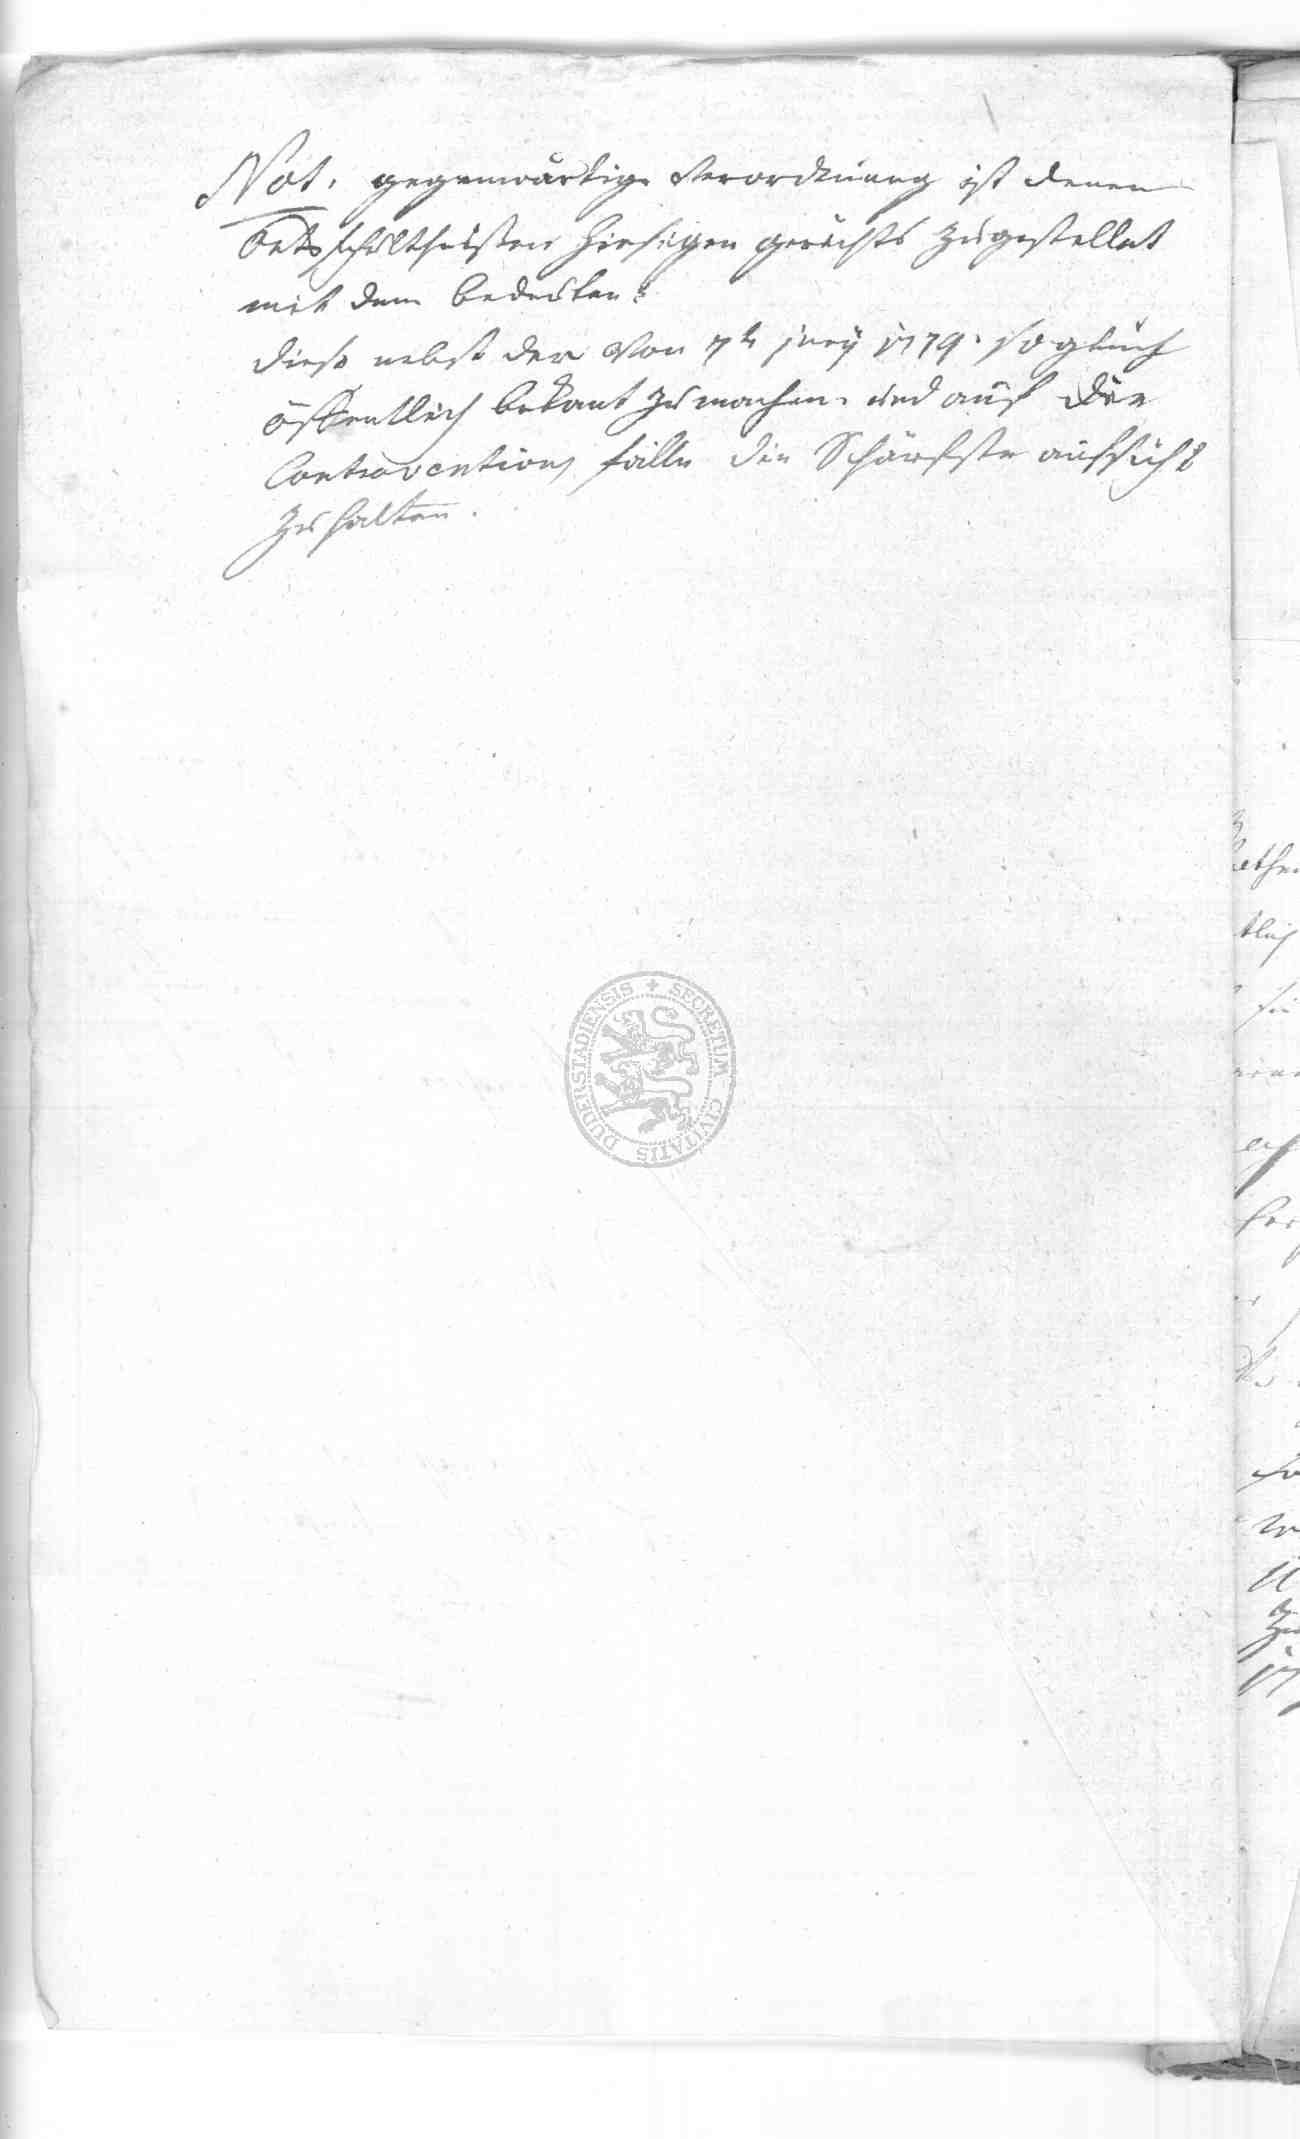 Not. gegenwärtige Verordnung ist denen
Ortsschultheißen hiesigen gerichts zugestellet
mit dem bedeuten:
diese nebst der von 7t juny 1779. so gleich
öffentlich bekant zu machen und auf die
Contraventions fälle die Schärfste aufsicht
zu halten.
SECRETUM CIVITATIS DUDERSTADIENSIS